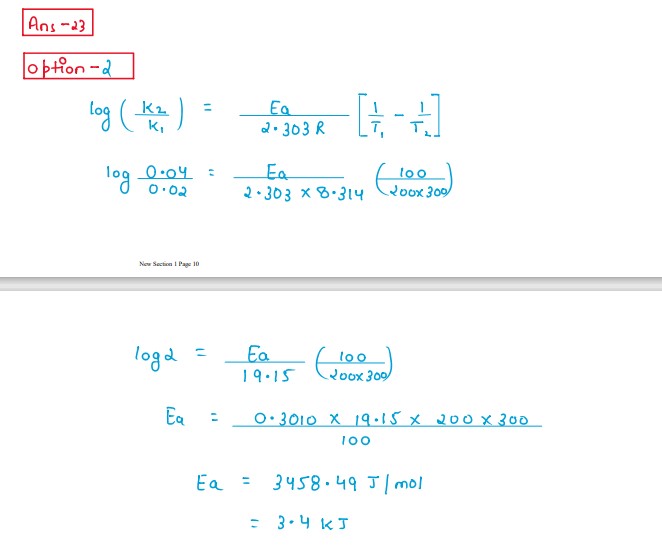 Ans -23
option - 2
log ( K2 / K1 ) = Ea / 2.303 R [ 1 / T1 - 1 / T2 ]
log 0.04 / 0.02 = Ea / 2.303 x 8.314 ( 100 / 200x300 )
New Section 1 Page 10
log2 = Ea / 19.15 ( 100 / 200x300 )
Ea = 0.3010 x 19.15 x 200 x 300 / 100
Ea = 3458.49 J/mol
= 3.4 kJ